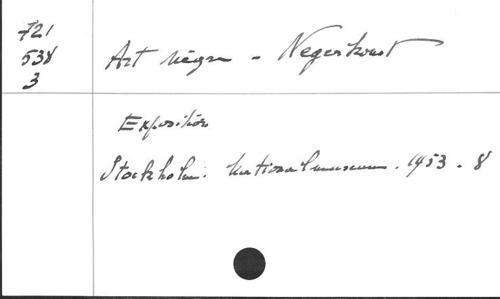 721
538
3
Art nègre - Negerkonst
Exposition
Stockholm. Nationalmuseum. 1953. 8